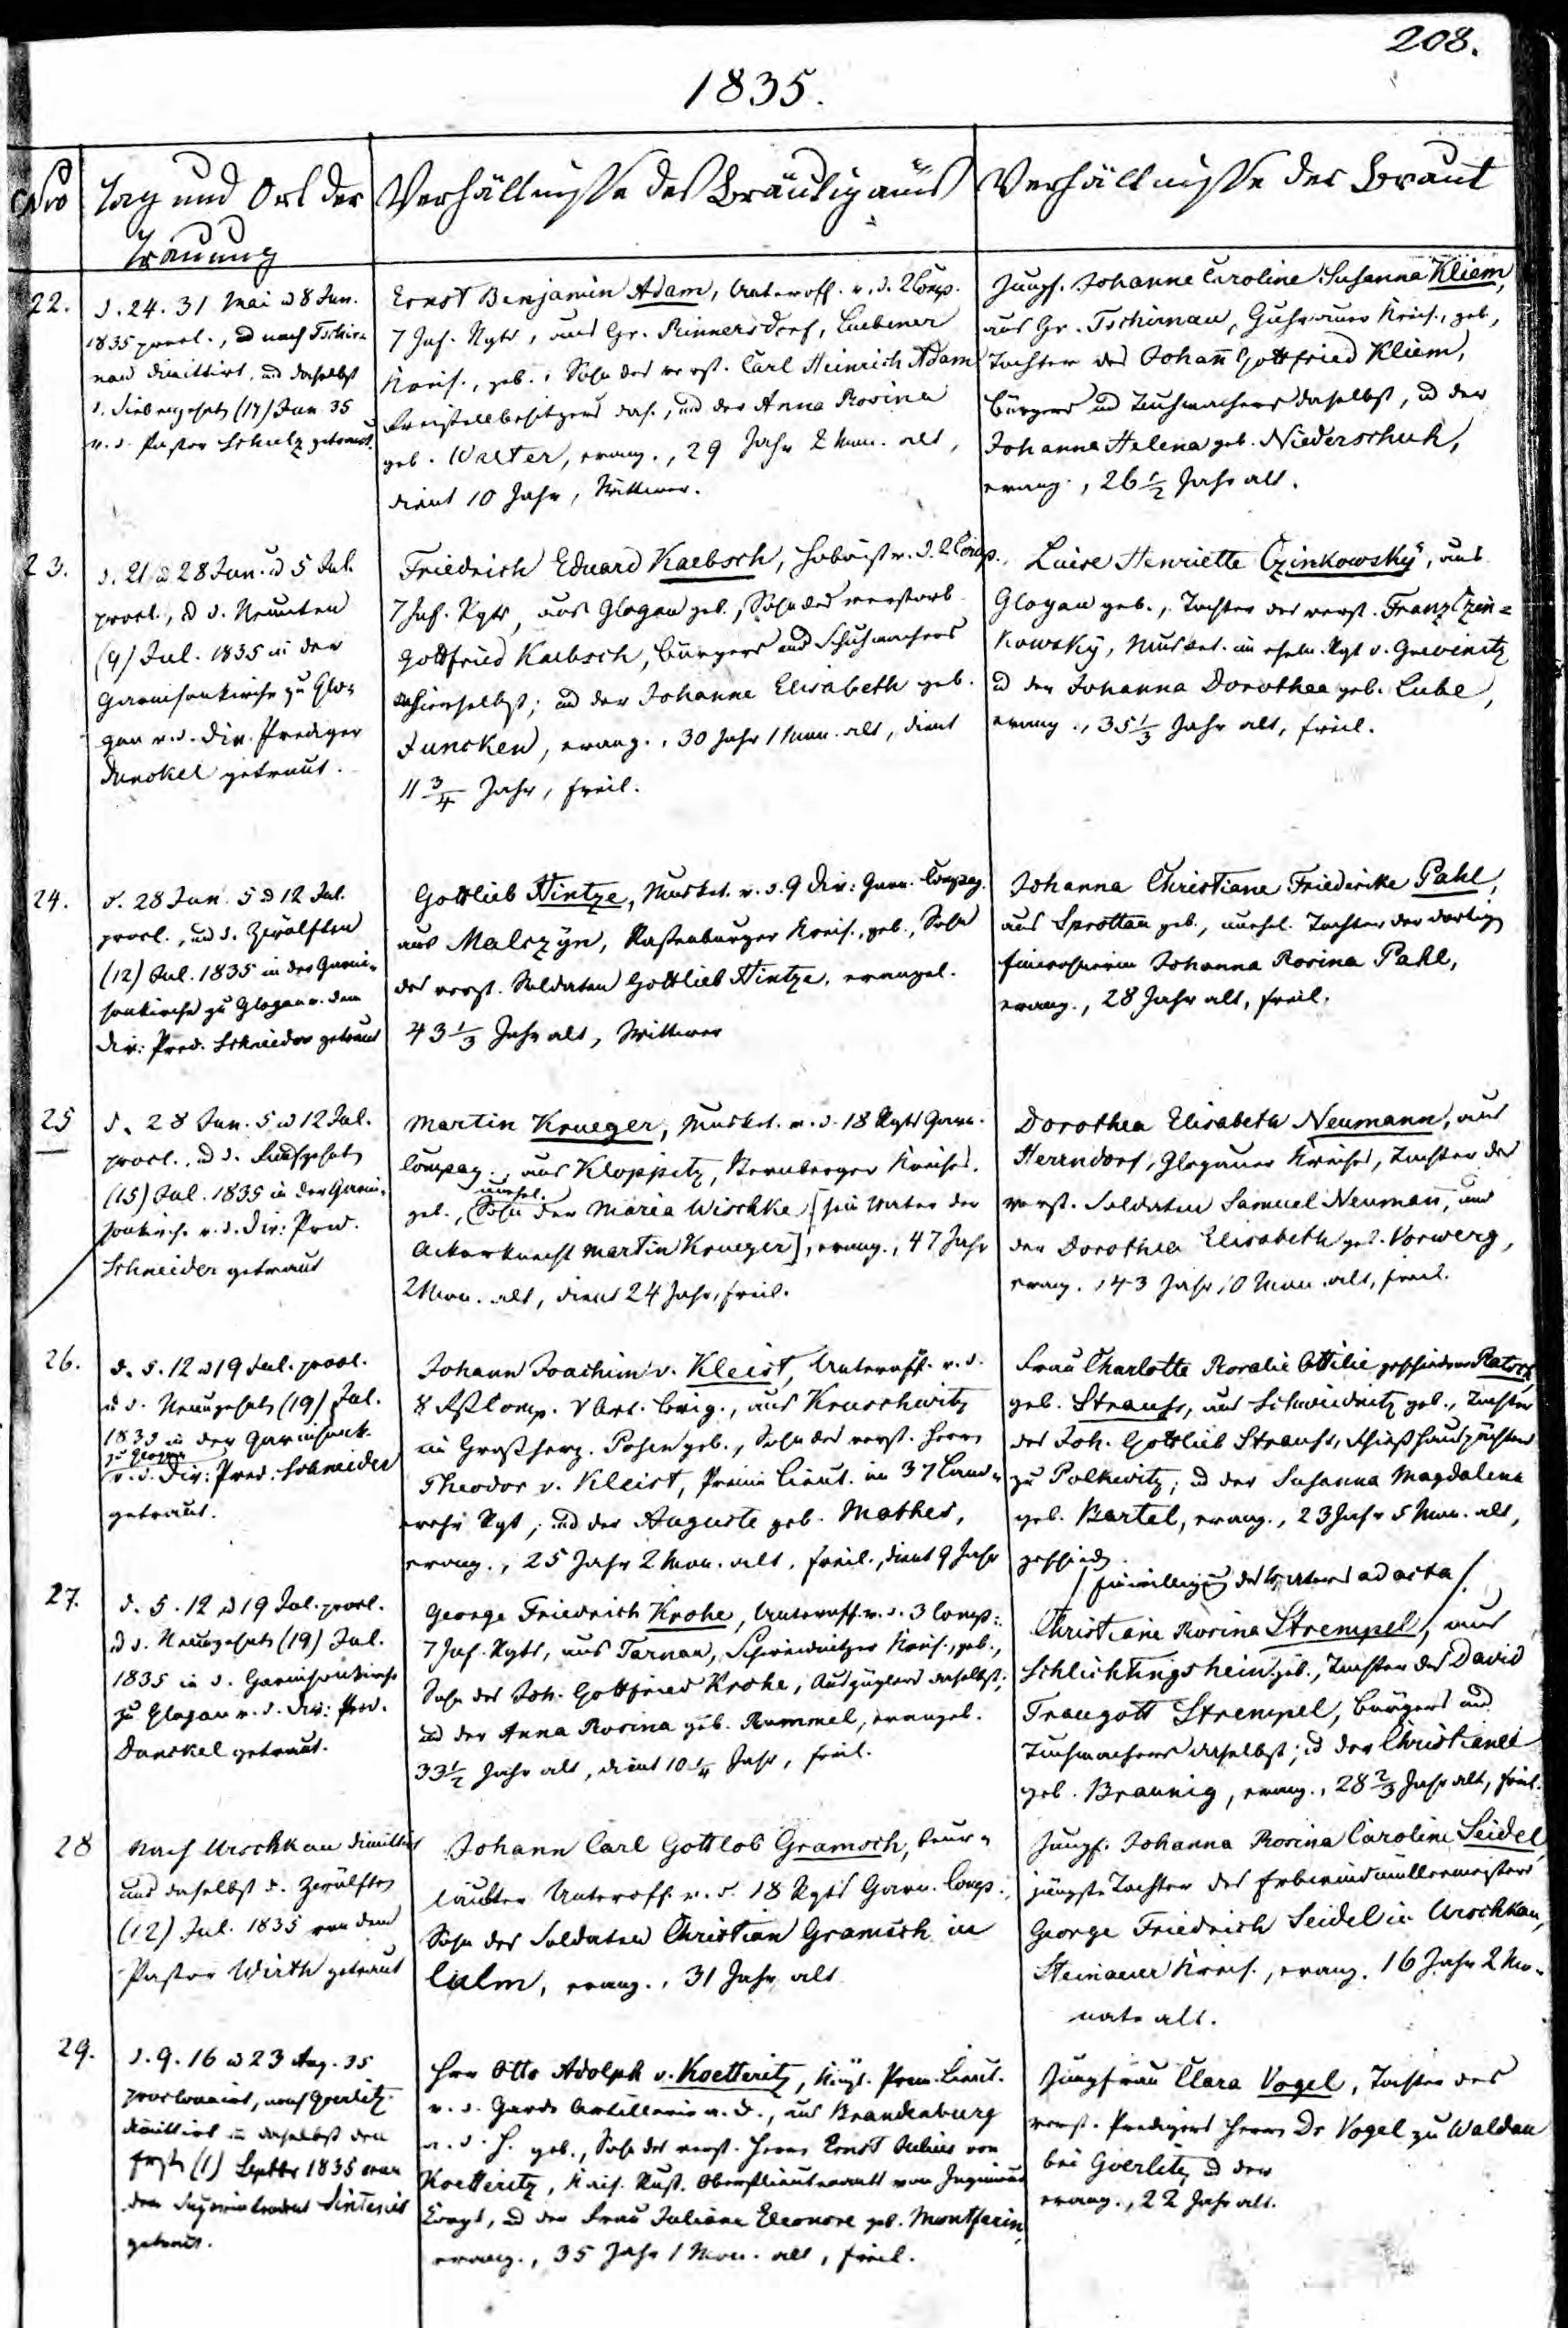 208.
1835.
Nro
Tag und Ort der
Trauung
Verhältnisse des Bräutigams
Verhältnisse der Braut
22.
d. 24. 31 Mai u 8 Jun.
1835 procl., ud nach Tschir-
nau dimittirt, und daselbst
d. Siebenzehnten (17) Jun. 35
v. d. Pastor Schulz getraut.
Ernst Benjamin Adam, Unteroff. v. d. 2 Comp.
7 Inf. Rgts, aus Gr. Rinnersdorf, Luebener
Kreis., geb., Sohn des verst. Carl Heinrich Adam
Freistellbesitzers das., und der Anna Rosina
geb. Walter, evang., 29 Jahr 2 Mon. alt,
dient 10 Jahr, Wittwer.
Jungf. Johanne Caroline Susanna Kliem,
aus Gr. Tschirnau, Guhrauer Kreis., geb.,
Tochter des Johann Gottfried Kliem,
Bürgers ud Tuchmachers daselbst, ud der
Johanna Helena geb. Niederschuh,
evang., 26 1/2 Jahr alt.
23.
d. 21 u 28 Jun. u 5 Jul.
procl., ud d. Neunten
(9) Jul. 1835 in der
Garnisonkirche zu Glo-
gau v. d. Div. Prediger
Dunckel getraut.
Friedrich Eduard Kaebsch, Hoboist v. d. 2 Comp.
7 Inf. Rgts, aus Glogau geb., Sohn des verstorb.
Gottfried Kaebsch, Bürgers und Schuhmachers
hierselbst; ud der Johanne Elisabeth geb.
Juncken, evang., 30 Jahr 1 Mon. alt, dient
11 3/4 Jahr, freil.
Luise Henriette Czinkowsky, aus
Glogau geb., Tochter des verst. Franz Czin=
kowsky, Musket. im ehem. Rgt v. Grevenitz
ud der Johanna Dorothea geb. Lube,
evang., 35 1/3 Jahr alt, freil.
24.
d. 28 Jun. 5 u 12 Jul.
procl., ud d. Zwölften
(12) Jul. 1835 in der Garni-
sonkirche zu Glogau v. dem
Div: Pred. Schneider getraut
Gottlieb Hintze, Musket. v. d. 9 Div: Garn. Compag.
aus Malczyn, Rastenburger Kreis., geb., Sohn
des verst. Soldaten Gottlieb Hintze, evangel.
43 1/3 Jahr alt, Wittwer
Johanna Christiane Friederike Pahl,
aus Sprottau geb., unehel. Tochter der dortigen
Einwohnerin Johanna Rosina Pahl,
evang., 28 Jahr alt, freil.
25
d. 28 Jun. 5 u 12 Jul.
procl., ud d. Funfzehnten
(15) Jul. 1835 in der Garni-
sonkirch. v. d. Div: Pred.
Schneider getraut
Martin Krueger, Musket. v. d. 18 Rgts Garn.
Compag., aus Kloppitz, Sternberger Kreises.
unehel.
geb., Sohn der Maria Wischke [sein Vater der
Ackerknecht Martin Krueger], evang., 47 Jahr
2 Mon. alt, dient 24 Jahr, freil.
Dorothea Elisabeth Neumann, aus
Herrndorf, Glogauer Kreises, Tochter des
verst. Soldaten Samuel Neumann, und
der Dorothea Elisabeth geb. Vorwerg,
evang. 43 Jahr 10 Mon. alt, freil.
26.
d. 5. 12 u 19 Jul. procl.
ud d. Neunzehnten (19) Jul.
1835 in der Garnisonk.
zu Glogau
v. d. Div: Pred. Schneider
getraut.
Johann Joachim v. Kleist, Unteroff. v. d.
8 Fßcomp. V Art. Brig., aus Kruschwitz
im Großherz. Posen geb., Sohn des verst. Herrn
Theodor v. Kleist, Premier Lieut. im 37 Land-
wehr Rgt, ud der Auguste geb. Mathes,
evang., 25 Jahr 2 Mon. alt, freil., dient 9 Jahr
Frau Charlotte Rosalie Ottilie geschiedene
geb. Strauss, aus Schweidnitz geb., Tochter
des Joh. Gottlieb Strauss, Schießhauspächters
zu Polkwitz, ud der Susanna Magdalena
geb. Bartel, evang., 23 Jahr 5 Mon. alt,
geschieden.
/ Einwilligung des Vaters ad acta /.
27.
d. 5. 12 u 19 Jul. procl.
ud d. Neunzehnten (19) Jul.
1835 in d. Garnisonkirche
zu Glogau v. d. Div: Pred.
Dunckel getraut.
George Friedrich Krohe, Unteroff. v. d. 3 Comp:
7 Inf. Rgts, aus Tarnau, Schweidnitzer Kreis., geb.,
Sohn des Joh. Gottfried Krohe, Auszüglers daselbst;
ud der Anna Rosina geb. Rummel, evangel.
33 1/2 Jahr alt, dient 10 1/4 Jahr, freil.
Christiane Rosina Strempel, aus
Schlichtingsheim geb., Tochter des David
Traugott Strempel, Bürgers und
Tuchmachers daselbst; ud der Christiane
geb. Braunig, evang., 28 2/3 Jahr alt, freil.
28
Nach Urschkau dimittirt
und daselbst d. Zwölften
(12) Jul. 1835 von dem
Pastor Wirth getraut
Johann Carl Gottlob Gramsch, beur-
laubter Unteroff. v. d. 18 Rgts Garn. Comp.,
Sohn des Soldaten Christian Gramsch in
Culm, evang., 31 Jahr alt
Jungf. Johanna Rosina Caroline Seidel
jüngste Tochter des Erbwindmüllermeisters
George Friedrich Seidel in Urschkau,
Steinauer Kreis., evang. 16 Jahr 2 Mo-
nate alt.
29.
d. 9. 16 u 23 Aug. 35
proclamirt, nach Goerlitz
dimittirt u daselbst den
Ersten (1) Septbr 1835 von
dem Superintendent Sintenis
getraut.
Herr Otto Adolph v. Koetteritz, Königl. Prem. Lieut.
v. d. Garde Artillerie a. D., aus Brandenburg
a. d. H. geb., Sohn des verst. Herrn Ernst Julius von
Koetteritz, Kais. Russ. Oberstlieutenant vom Ingenieur
Corps, ud der Frau Juliane Eleonore geb.
evang., 35 Jahr 1 Mon. alt, freil.
Jungfrau Clara Vogel, Tochter des
verst. Predigers Herrn Dr Vogel zu Waldau
bei Goerlitz ud der
evang., 22 Jahr alt.